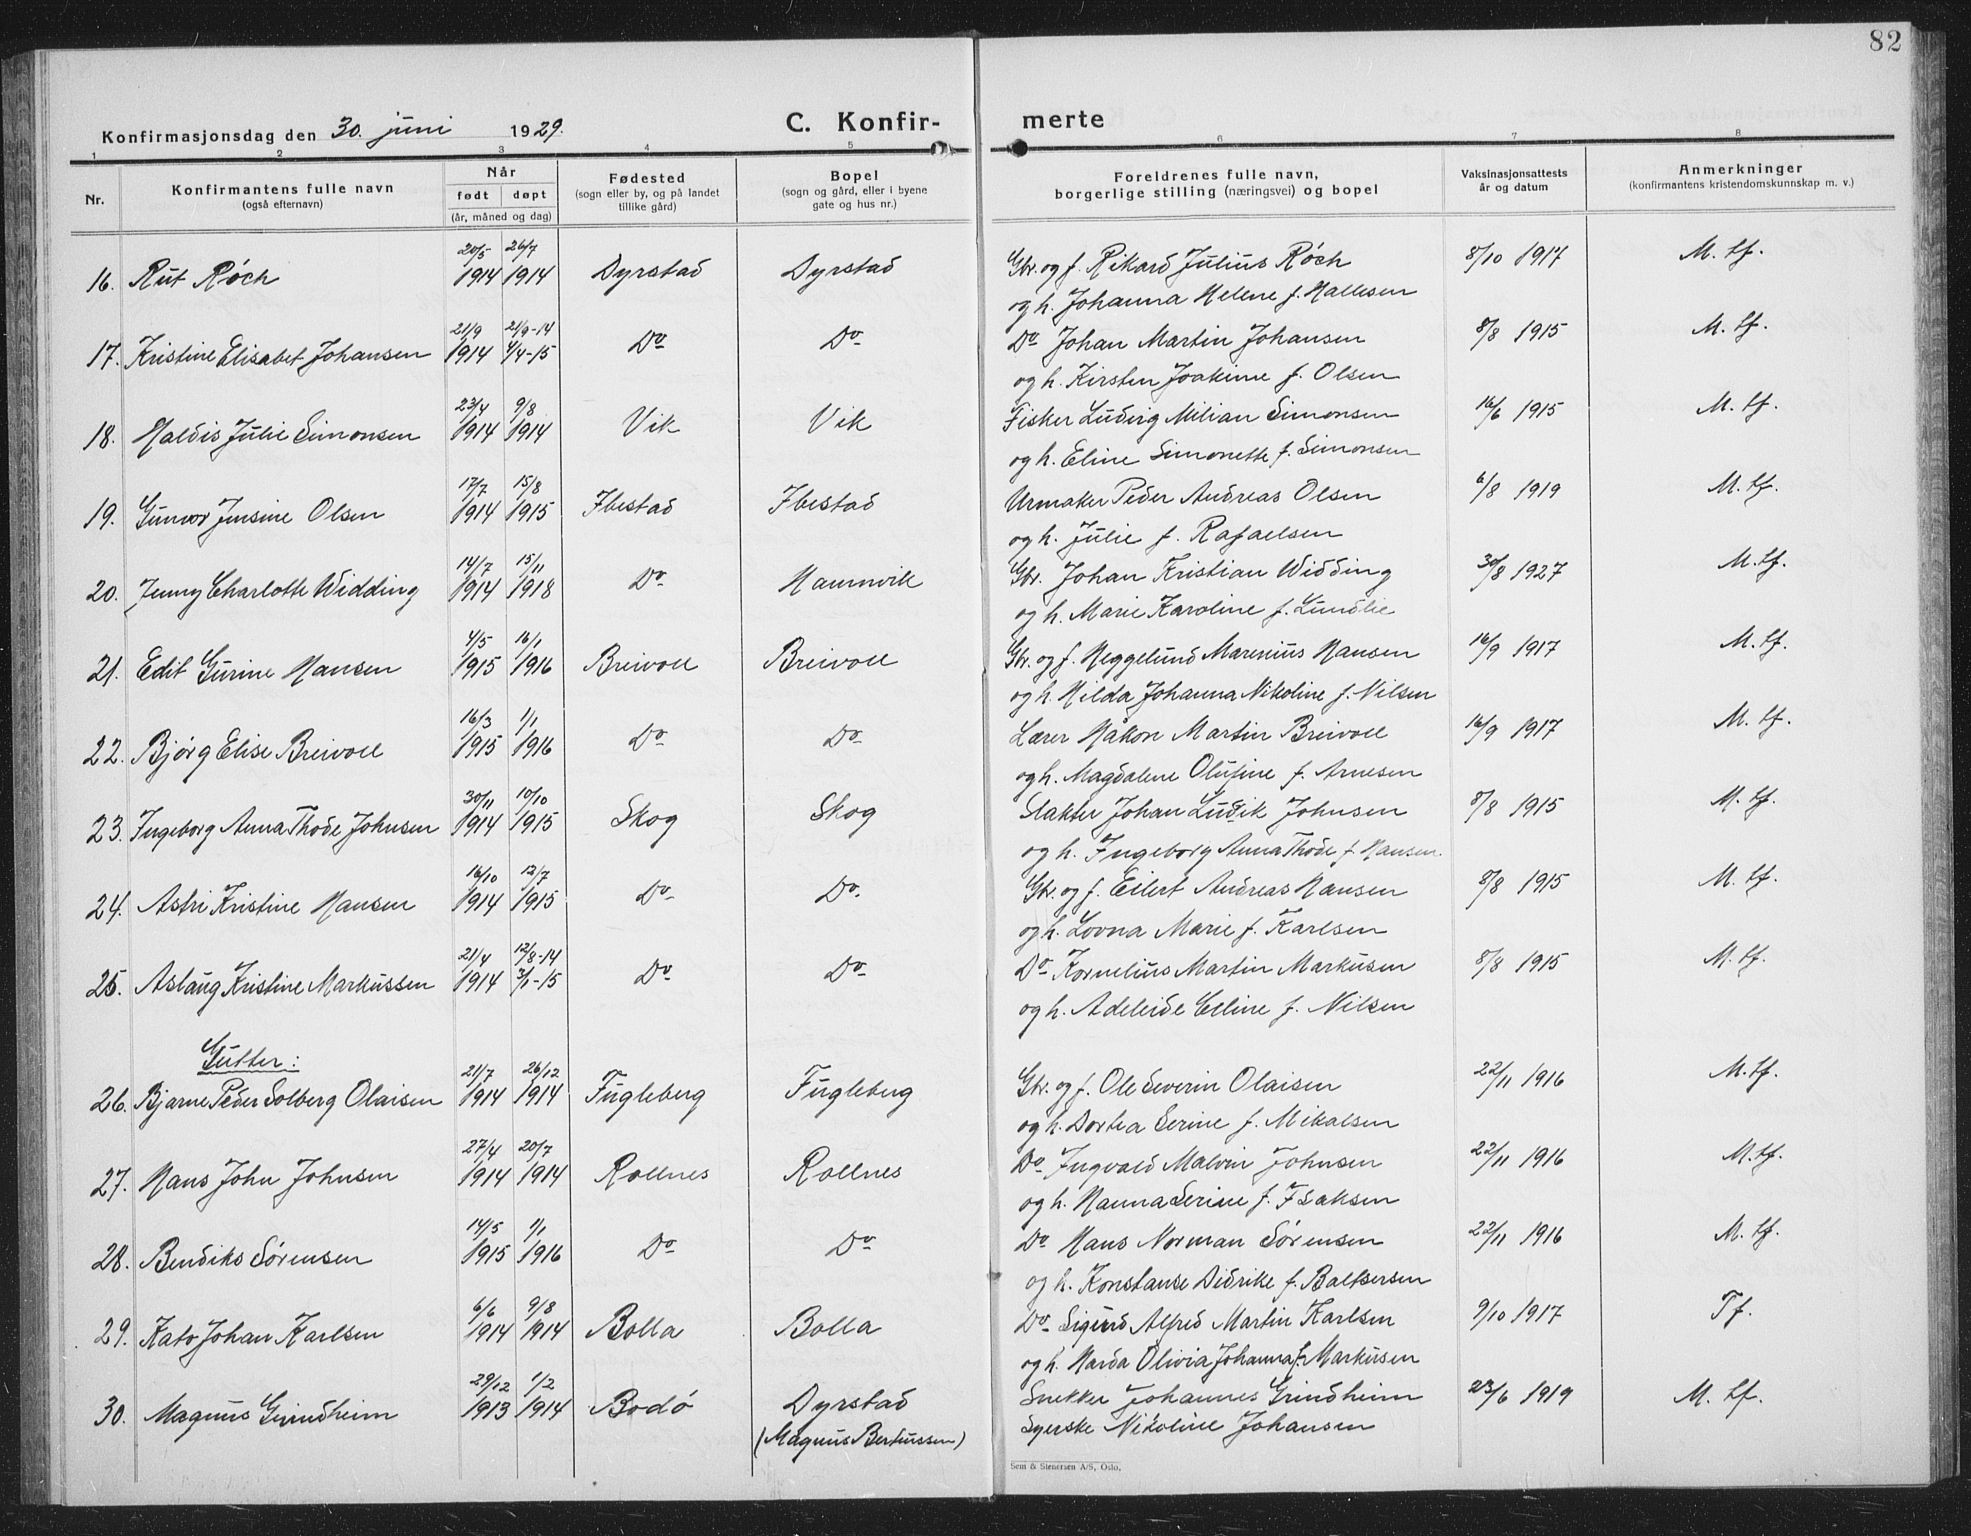 82
Konfirmasjonsdag den 30. juni 1929. C. Konfir- merte
1 2 3 4 5 6 7 8
Nr. Konfirmantens fulle navn (også efternavn) Når født døpt (år, måned og dag) Fødested (sogn eller by, og på landet tillike gård) Bopel (sogn og gård, eller i byene gate og hus nr.) Foreldrenes fulle navn, borgerlige stilling (næringsvei) og bopel Vaksinasjonsattests år og datum Anmerkninger (konfirmantens kristendomskunnskap m. v.)
16. Rut Røch 20/5 1914 26/7 1914 Dyrstad Dyrstad Gbr. og f. Rikard Julius Røch 8/10 1917 M. tf.
og h. Johanna Helene f. Hallesen
17. Kristine Elisabet Johansen 21/9 1914 21/9-14 4/4-15 Do Do Do Johan Martin Johansen 8/8 1915 M. tf.
og h. Kirsten Joakime f. Olsen
18. Haldis Julie Simonsen 23/4 1914 9/8 1914 Vik Vik Fisker Ludvig Milian Simonsen 16/6 1915 M. tf.
og h. Eline Simonette f. Simonsen
19. Gunvor Jensine Olsen 17/7 1914 15/8 1915 Ibestad Ibestad Urmaker Peder Andreas Olsen 6/8 1919 M. tf.
og h. Julie f. Rafaelsen
20. Jenny Charlotte Widding 14/7 1914 15/11 1918 Do Hamnvik Gbr. Johan Kristian Widding 30/8 1927 M. tf.
og h. Marie Karoline f. Lundlie
21. Edit Gurine Hansen 4/5 1915 16/1 1916 Breivoll Breivoll Gbr. og f. Heggelund Marenius Hansen 16/9 1917 M. tf.
og h. Hilda Johanna Nikoline f. Nilsen
22. Bjørg Elise Breivoll 16/3 1915 1/1 1916 Do Do Lærer Håkon Martin Breivoll 16/9 1917 M. tf.
og h. Magdalene Olufine f. Arnesen
23. Ingeborg Anna Thode Johnsen 30/11 1914 10/10 1915 Skog Skog Slakter Johan Ludvik Johnsen 8/8 1915 M. tf.
og h. Ingeborg Anna Thode f. Hansen.
24. Astri Kristine Hansen 16/10 1914 12/7 1915 Do Do Gbr. og f. Eilert Andreas Hansen 8/8 1915 M. tf.
og h. Lovna Marie f. Karlsen
25. Aslaug Kristine Markussen 21/4 1914 12/8-14 3/1-15 Do Do Do Kornelius Martin Markusen 8/8 1915 M. tf.
og h. Adeleide Eline f. Nilsen
Gutter:
26. Bjarne Peder Solberg Olaisen 21/7 1914 26/12 1914 Fugleberg Fugleberg Gbr. og f. Ole Severin Olaisen 22/11 1916 M. tf.
og h. Dortea Serine f. Mikalsen
27. Hans John Johnsen 27/4 1914 20/7 1914 Rollnes Rollnes Do Ingvald Malvin Johnsen 22/11 1916 M. tf.
og h. Hanna Serine f. Isaksen
28. Bendiks Sørensen 14/5 1915 1/1 1916 Do Do Do Hans Norman Sørensen 22/11 1916 M. tf.
og h. Konstanse Didrike f. Baltsersen
29. Kato Johan Karlsen 6/6 1914 9/8 1914 Bolla Bolla Do Sigurd Alfred Martin Karlsen 9/10 1917 Tf.
og h. Harda Olivia Johanna f. Markusen
30. Magnus Grindheim 29/12 1913 1/2 1914 Bodø Dyrstad Snekker Johannes Grindheim 23/6 1919 M. tf.
(Magnus Berteussen) Syerske Nikoline Johansen
Sem & Stenersen A/S, Oslo.